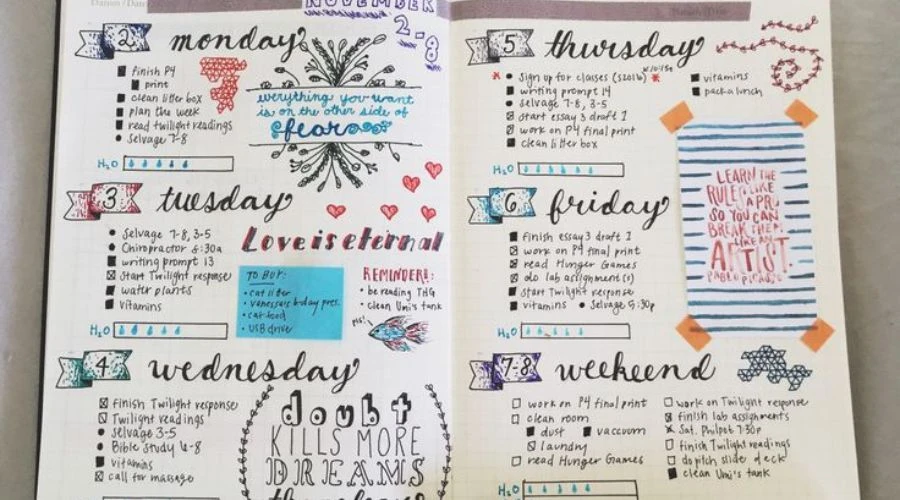 NOVEMBER
2-8
2 monday
finish P4
print
clean litter box
plan the week
read twilight readings
Selvage 7-8
H2O
everything you want
is on the other side of
fear
3 tuesday
Selvage 7-8, 3-5
Chiropractor 8:30a
writing prompt 13
Start Twilight response
water plants
vitamins
H2O
Love is eternal
TO BUY:
cat litter
vanessa's b-day pres.
cat food
USB drive
REMINDER!:
be reading THG
clean Umi's tank
pls!
4 wednesday
finish Twilight response
Twilight readings
Selvage 3-5
Bible Study 6-8
vitamins
call for massage
doubt
KILLS MORE
DREAMS
5 thursday
Sign up for classes (S2016)
writing prompt 14
selvage 7-8, 3-5
start essay 3 draft 1
work on P4 final print
clean litter box
vitamins
pack lunch
H2O
6 friday
finish essay 3 draft 1
work on P4 final print
read Hunger Games
do lab assignment(s)
start Twilight response
vitamins
Selvage 5:30p
H2O
LEARN THE
RULES LIKE
A PRO
SO YOU CAN
BREAK THEM
LIKE AN
ARTIST
PABLO PICASSO
7-8 weekend
work on P4 final print
clean room
dust
vaccuum
laundry
read Hunger Games
work on Twilight response
finish lab assignments
Sat. Philpot 7:30p
finish Twilight readings
do pitch slide deck
clean Umi's tank
H2O